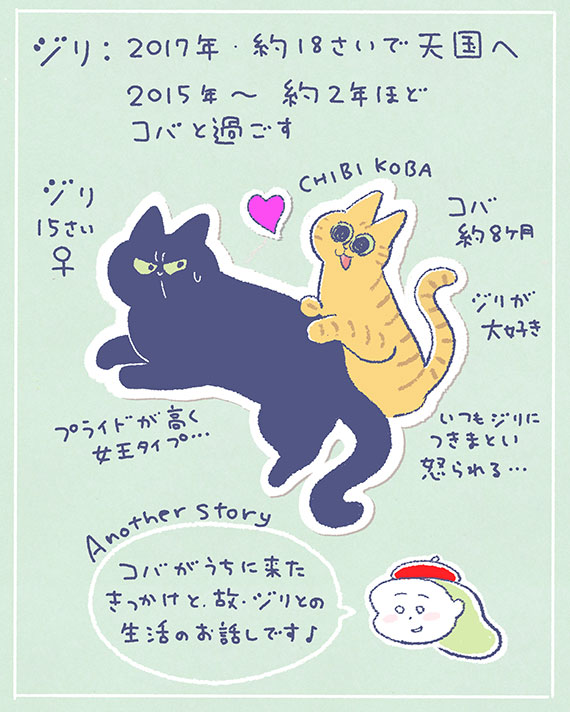 ジリ：2017年・約18さいで天国へ
2015年〜 約2年ほど
コバと過ごす
CHIBI KOBA
ジリ
15さい
♀
コバ
約8ヶ月
ジリが
大好き
プライドが高く
女王タイプ…
いつもジリに
つきまとい
怒られる…
Another Story
コバがうちに来た
きっかけと、故・ジリとの
生活のお話しです♪